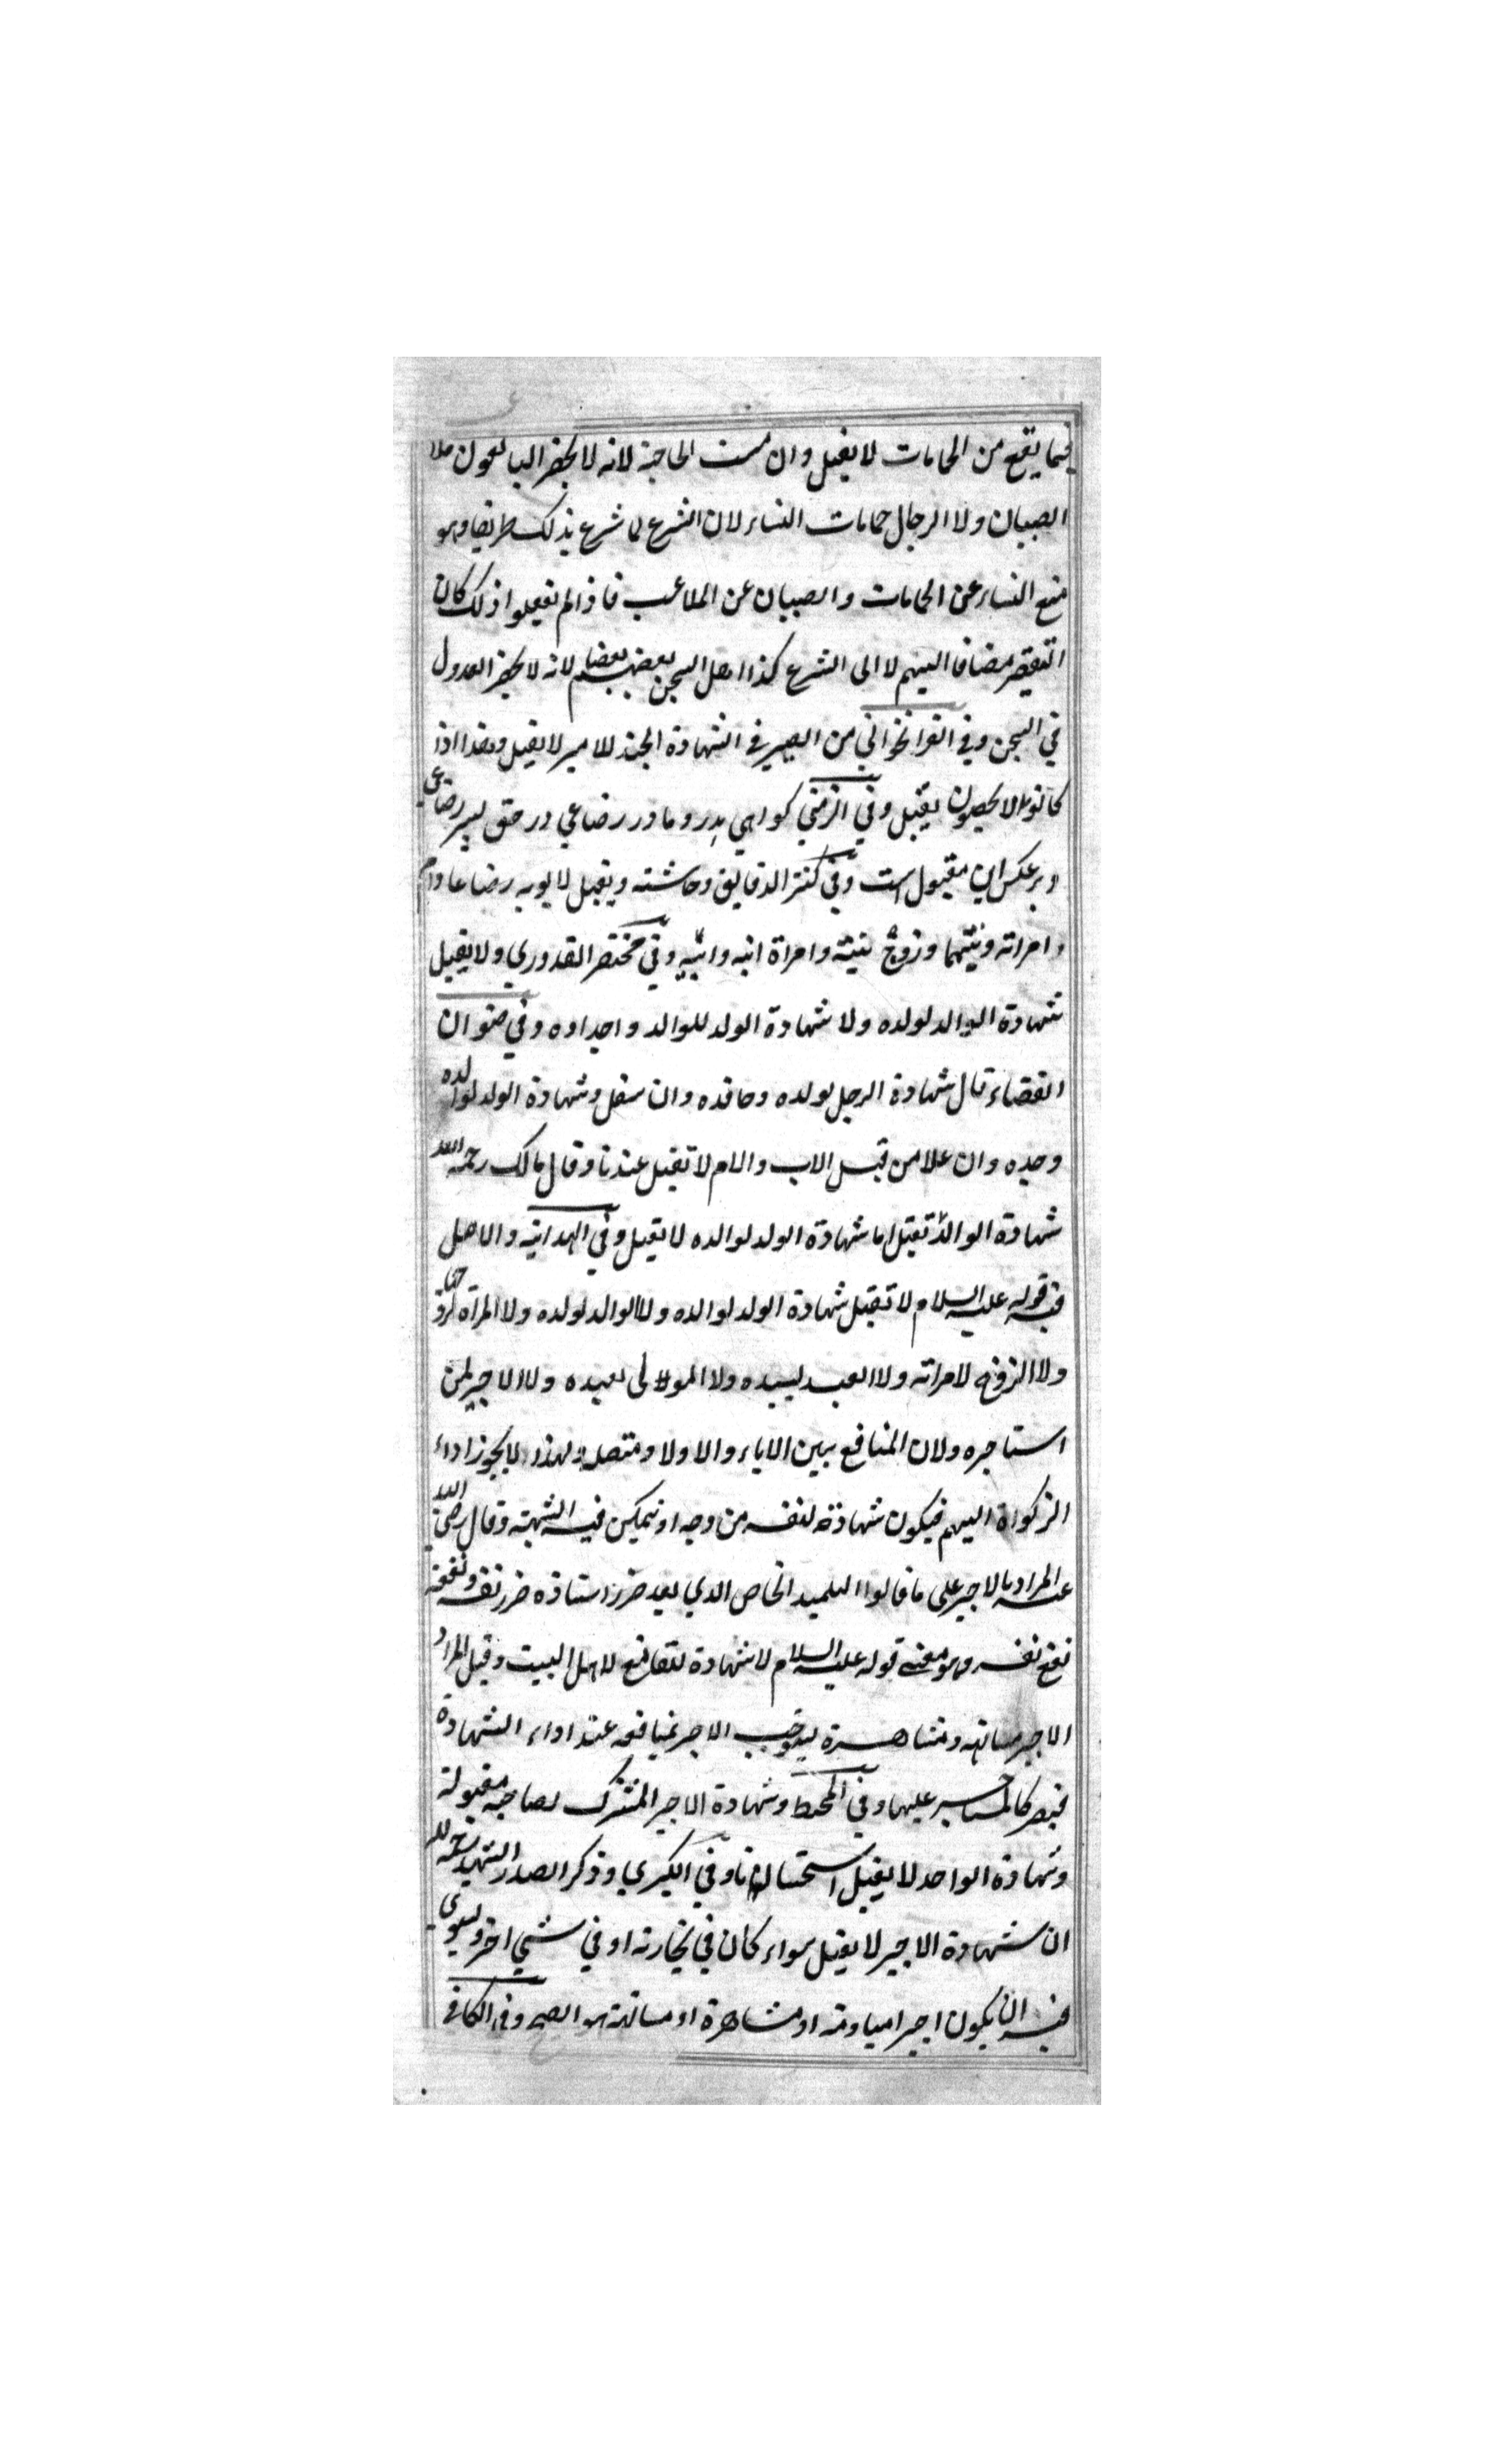 فيما يقع من الحمامات لا يقبل وان مست الحاجة لانه لا يحضر البالغون ملا
الصبيان ولا الرجال حمامات النساء لان الشرع لما شرع بذلك طريقا وهو
منع النساء عن الحمامات والصبيان عن الملاعب فاذا لم يفعلوا ذلك كان
التقصير مضافا اليهم لا الى الشرع كذا اهل السجن بعضهم بعضا لانه لا يحضر العدول
في السجن وفي القراخواني من الصيرفي الشهادة الجند للامير لا يقبل وهذا اذا
كانوا لا يحصون يقبل وفي الزمني كواهي پدر و مادر رضاعي در حق پسر رضاعي
و بر عكس اين مقبول است وفي كنز الدقايق وحاشيته ويقبل لابويه رضاعا وام
امراته وبنتهما وزوج بنته وامراة ابنه وابيه وفي مختصر القدوري ولا يقبل
شهادة الوالد لولده ولا شهادة الولد للوالد واجداده وفي صنوان
القضاء قال شهادة الرجل لولده وحافده وان سفل وشهادة الولد لوالده
وجده وان علا من قبل الاب والام لا تقبل عندنا وقال مالك رحمه الله
شهادة الوالد تقبل اما شهادة الولد لوالده لا يقبل وفي الهداية والاصل
فيه قوله عليه السلام لا تقبل شهادة الولد لوالده ولا الوالد لولده ولا المراة لزوجها
ولا الزوج لامراته ولا العبد لسيده ولا المولى لعبده ولا الاجير لمن
استاجره ولان المنافع بين الاباء والاولاد متصلة ولهذا لا يجوز اداء
الزكواة اليهم فيكون شهادة لنفسه من وجه او يتمكن فيه الشبهة وقال رضي الله
عنه المراد بالاجير على ما قالوا التلميذ الخاص الذي يعد ضرر استاذه ضرر نفسه ونفعه
نفع نفسه وهو معنى قوله عليه السلام لا شهادة للقانع لاهل البيت وقيل المراد
الاجير مسانهة ومشاهرة ليستوجب الاجر بمنافعه عند اداء الشهادة
فيصير كالمستاجر عليها وفي المحيط وشهادة الاجير المشترك لصاحبه مقبولة
وشهادة الواحد لا يقبل استحسانا وفي الكبري وذكر الصدر الشهيد رحمه الله
ان شهادة الاجير لا يقبل سواء كان في تجارته او في شي اخر ويسوي
فيه ان يكون اجيرا مياومة او مشاهرة او مسانهة هو الصحيح وفي الكافي